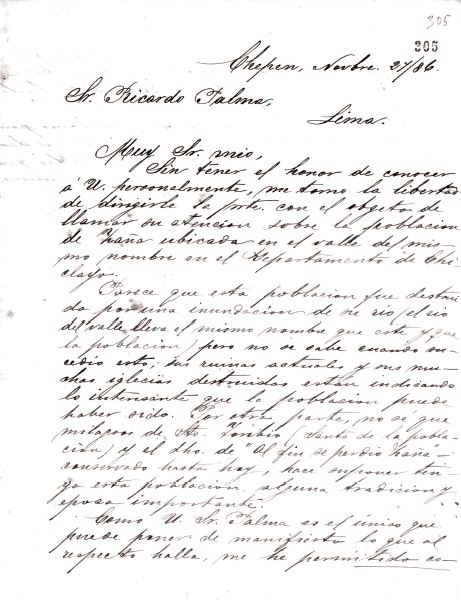 305
305
Chepen, Novbre. 27/86.
Sr. Ricardo Palma,
Lima.
Muy Sr. mio,
Sin tener el honor de conocer
á U. personalmente, me tomo la libertad
de dirigirle la prte. con el objeto de
llamar su atencion sobre la poblacion
de Zaña ubicada en el valle del mis-
mo nombre en el Departamento de Chi
clayo.
Parece que esta poblacion fue destrui
da por una inundacion de su rio (el rio
del valle lleva el mismo nombre que este y que
la poblacion) pero no se sabe cuando su-
cedio esto; sus ruinas actuales y sus mu-
chas iglesias destruidas estan indicando
lo interesante que la poblacion puede
haber sido. Por otra parte, no sé que
milagros de Sto. Toribio (Santo de la pobla-
cion) y el dho. de "Al fin se perdió Zaña"
conservado hasta hoy, hace suponer ten-
ga esta poblacion alguna tradicion y
epoca importante.
Como U. Sr. Palma es el único que
puede poner de manifiesto lo que al
respecto halla, me he permitido co-